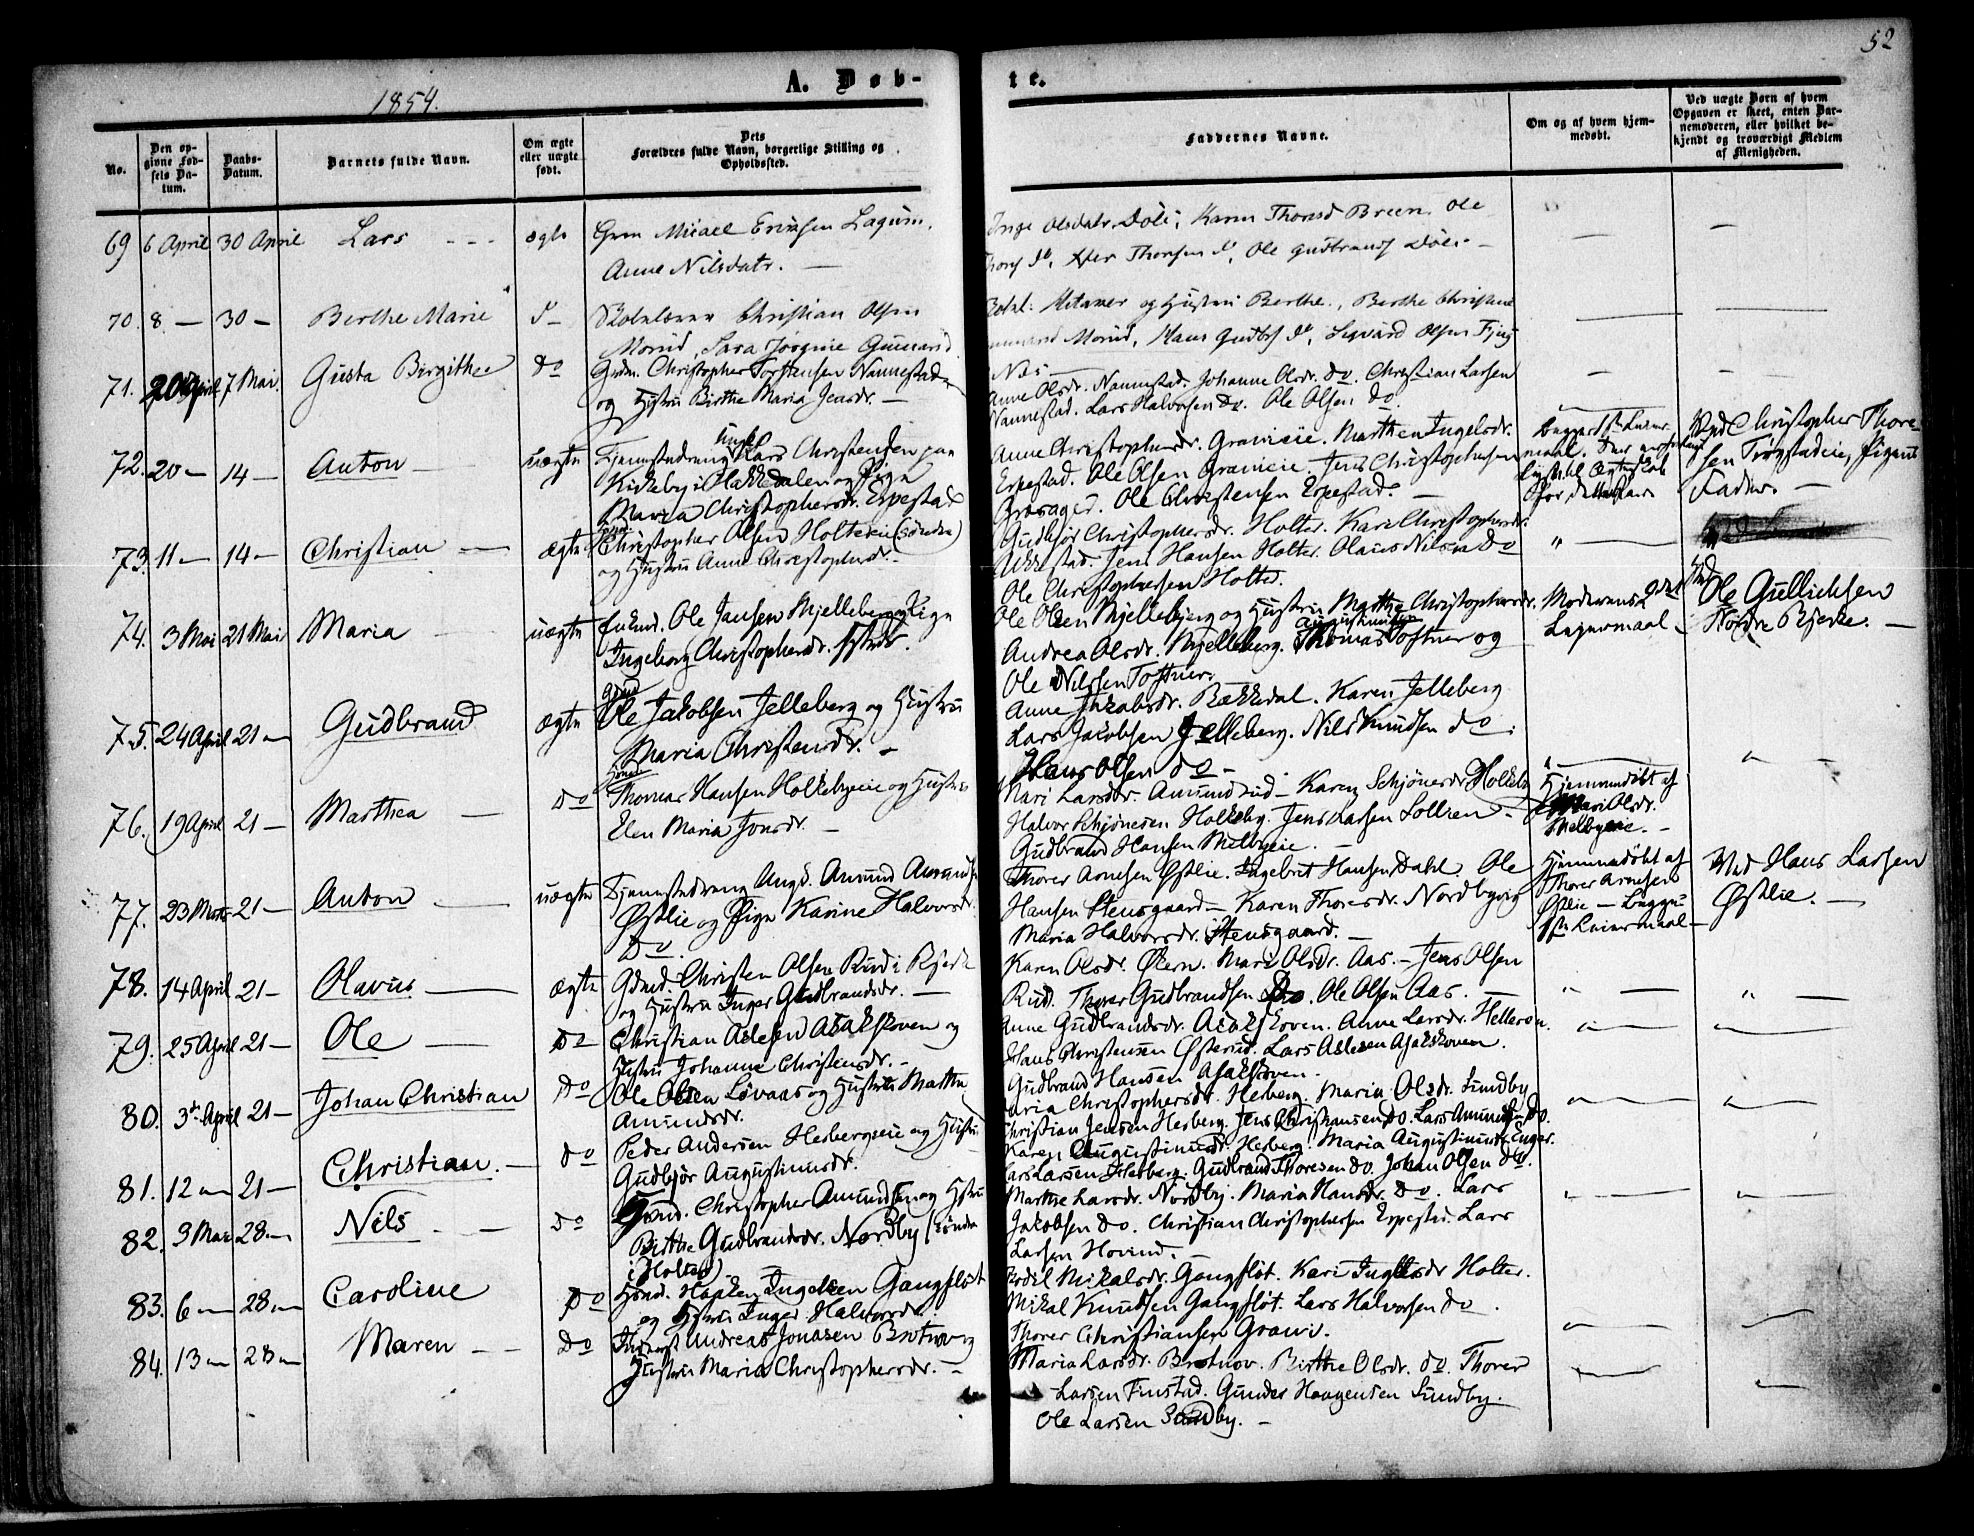 52
A. Døb-
te.
1854.
No.
Den op-
givne Fød-
sels Da-
tum.
Daabs-
Datum.
Barnets fulde Navn.
Om ægte
eller uægte
født.
Dets
Forældres fulde Navn, borgerlige Stilling og
Opholdssted.
Faddernes Navne.
Om og af hvem hjem-
medøbt.
Ved uægte Børn af hvem
Opgaven er skeet, enten Bar-
nemoderen, eller hvilket be-
kjendt og troværdigt Medlem
af Menigheden.
69 6 April 30 April Lars — ægte
Anne Nilsdatr. —
Olsdatr. Døli; Karen Thorsd Breen. Ole
Thorsen do, Ole Gudbrands Døli —
70. 8 — 30 — Berthe Marie do
Christian Olsen
Morud, Sara Jørgine Gunnarsd.
og Hustru Berthe, Berthe Christine
Morud, Hans Gudbs do, Sigvard Olsen
71. 20 April 7 Mai. Gusta Birgithe do
Grdm. Christopher Torstensen Nannestad
og Hustru Birthe Maria Jensdr. —
Anne Olsdr. Nannestad. Johanne Olsdr. do. Christian Larsen
Nannestad. Lars Halvorsen do. Ole Olsen do.
72. 20 — 14 — Anton — uægte
Tjenestedreng Ungk. Lars Christensen paa
Kirkeby i Hakkedalen og Pige
Maria Christophersdr. Erpestad
Anne Christophersdr. Granieie. Marthe Ingelsdr.
Erpestad. Ole Olsen Granieie. Jens Christophersen
Ole Christensen Erpestad. —
Ved Christopher Thore-
sen Trøgstadeie, Pigens
Fader. —
73. 11 — 14 — Christian — ægte
Christopher Olsen Holtereie (Søndre)
og Hustru Anne Christophersdr. —
Gudbjør Christophersdr. Holter. Kari Christophersdr.
Jens Hansen Holter. Olaus Nilsen do
Ole Christophersen Holter.
" —
74. 3 Mai 21 Mai Maria — uægte
Enkmd. Ole Jansen Mjelleberg og Pige
Ingeborg Christophersdr.
Ole Olsen Mjelleberg og Hustru Marthe Christophersdr.
Andrea Olsdr. Mjelleberg. Thomas Toftner og
Ole Nilssen Toftner.
Moderens 2det
Leiermaal —
Ved
Ole Gullichsen
Nordre Bjerke. —
75. 24 April 21 — Gudbrand ægte
Grmd
Ole Jakobsen Jelleberg og Hustru
Maria Christensdr. —
Anne Jakobsdr. Bækkedal. Karen Jelleberg
Lars Jacobsen Jelleberg. Nils Knudsen do
Hans Olsen do —
" —
76. 19 April 21 — Marthea — do
Thomas Hansen Holkebyeie og Hustru
Elen Maria Jonsdr. —
Mari Larsdr. Amundrud — Karen Schjønesdr. Holkeby
Halvor Schjønesen Holkeby. Jens Larsen Sollien —
Gudbrand Hansen Melbyeie. —
Hjemmedøbt af
Mari Olsdr.
Melbyeie. —
77. 23 Marts 21 — Anton — uægte
Tjenestedreng Ungk. Amund Amundsen
Østlie og Pige Karine Halvorsdr.
Do.
Thorer Arnesen Østlie. Ingebret Hansen Dahl. Ole
Hansen Stensgaard — Karen Thoresdr. Nordbyeie
Maria Halvorsdr. Stensgaard. —
Hjemmedøbt af
Thorer Arnesen
Østlie — Begges
1ste Leiermaal —
Ved Hans Larsen
Østlie. —
78. 14 April 21 — Olavus — ægte
Gdmd. Christen Olsen Rud i Bjerke
og Hustru Inger Gudbrandsdr. —
Karen Olsdr. Økern. Mari Olsdr. Aas. — Jens Olsen
Rud. Thorer Gudbrandsen do. Ole Olsen Aas. —
" — " —
79. 25 April 21 — Ole — do
Christian Aslesen Asakskoven og
Hustru Johanne Christensdr. —
Anne Gudbrandsdr. Asakskoven. Anne Larsdr.
Hans Christensen Østerud. Lars Aslesen Asakskoven.
Gudbrand Hansen Asakskoven —
" — —
80. 3die April 21 — Johan Christian Do
Ole Olsen Løvaas og Hustru Marthe
Amundsdr.
Maria Christophersdr. Herberg. Maria Olsdr. Sundby
Christian Jensen Herberg. Jens Christiansen do. Lars Amunds. do.
" — " —
81. 12 — 21 — Christian. — do
Peder Andersen Herbergseie og Hustru
Gudbjør Augustinusdr.
Karen Augustinusdr. Herberg. Maria Augustinusdr. Enger.
Lars Larsen Herberg. Gudbrand Thoresen do. Johan Olsen do.
" — " —
82. 9 Mai 28 — Nils — do
Grmd. Christopher Amundsen og Hstru
Birthe Gudbrandsdr. Nordby (Søndre
i Holter)
Marthe Larsdr. Nordby. Maria Hansdr. do. Lars
Jakobsen do. Christian Christophersen Erpestad. Lars
Larsen Hovind.
83. 6 — 28 — Caroline Do
Haaken Ingelsen Gangfløt
og Hstru Inger Halvorsdr.
Bodil Mikalsdr. Gangfløt. Kari Ingelsdr Holter.
Mikal Knudsen Gangfløt. Lars Halvorsen do.
Thorer Christiansen Grani.
" — —
84. 13 — 28 — Maren — Do
Andreas Jonasen Brotnov og
Hustru Maria Christophersdr. —
Maria Larsdr. Brotnov. Birthe Olsdr. do. Thorer
Larsen Finstad. Gunder Haagensen Sundby.
Ole Larsen Sundby. —